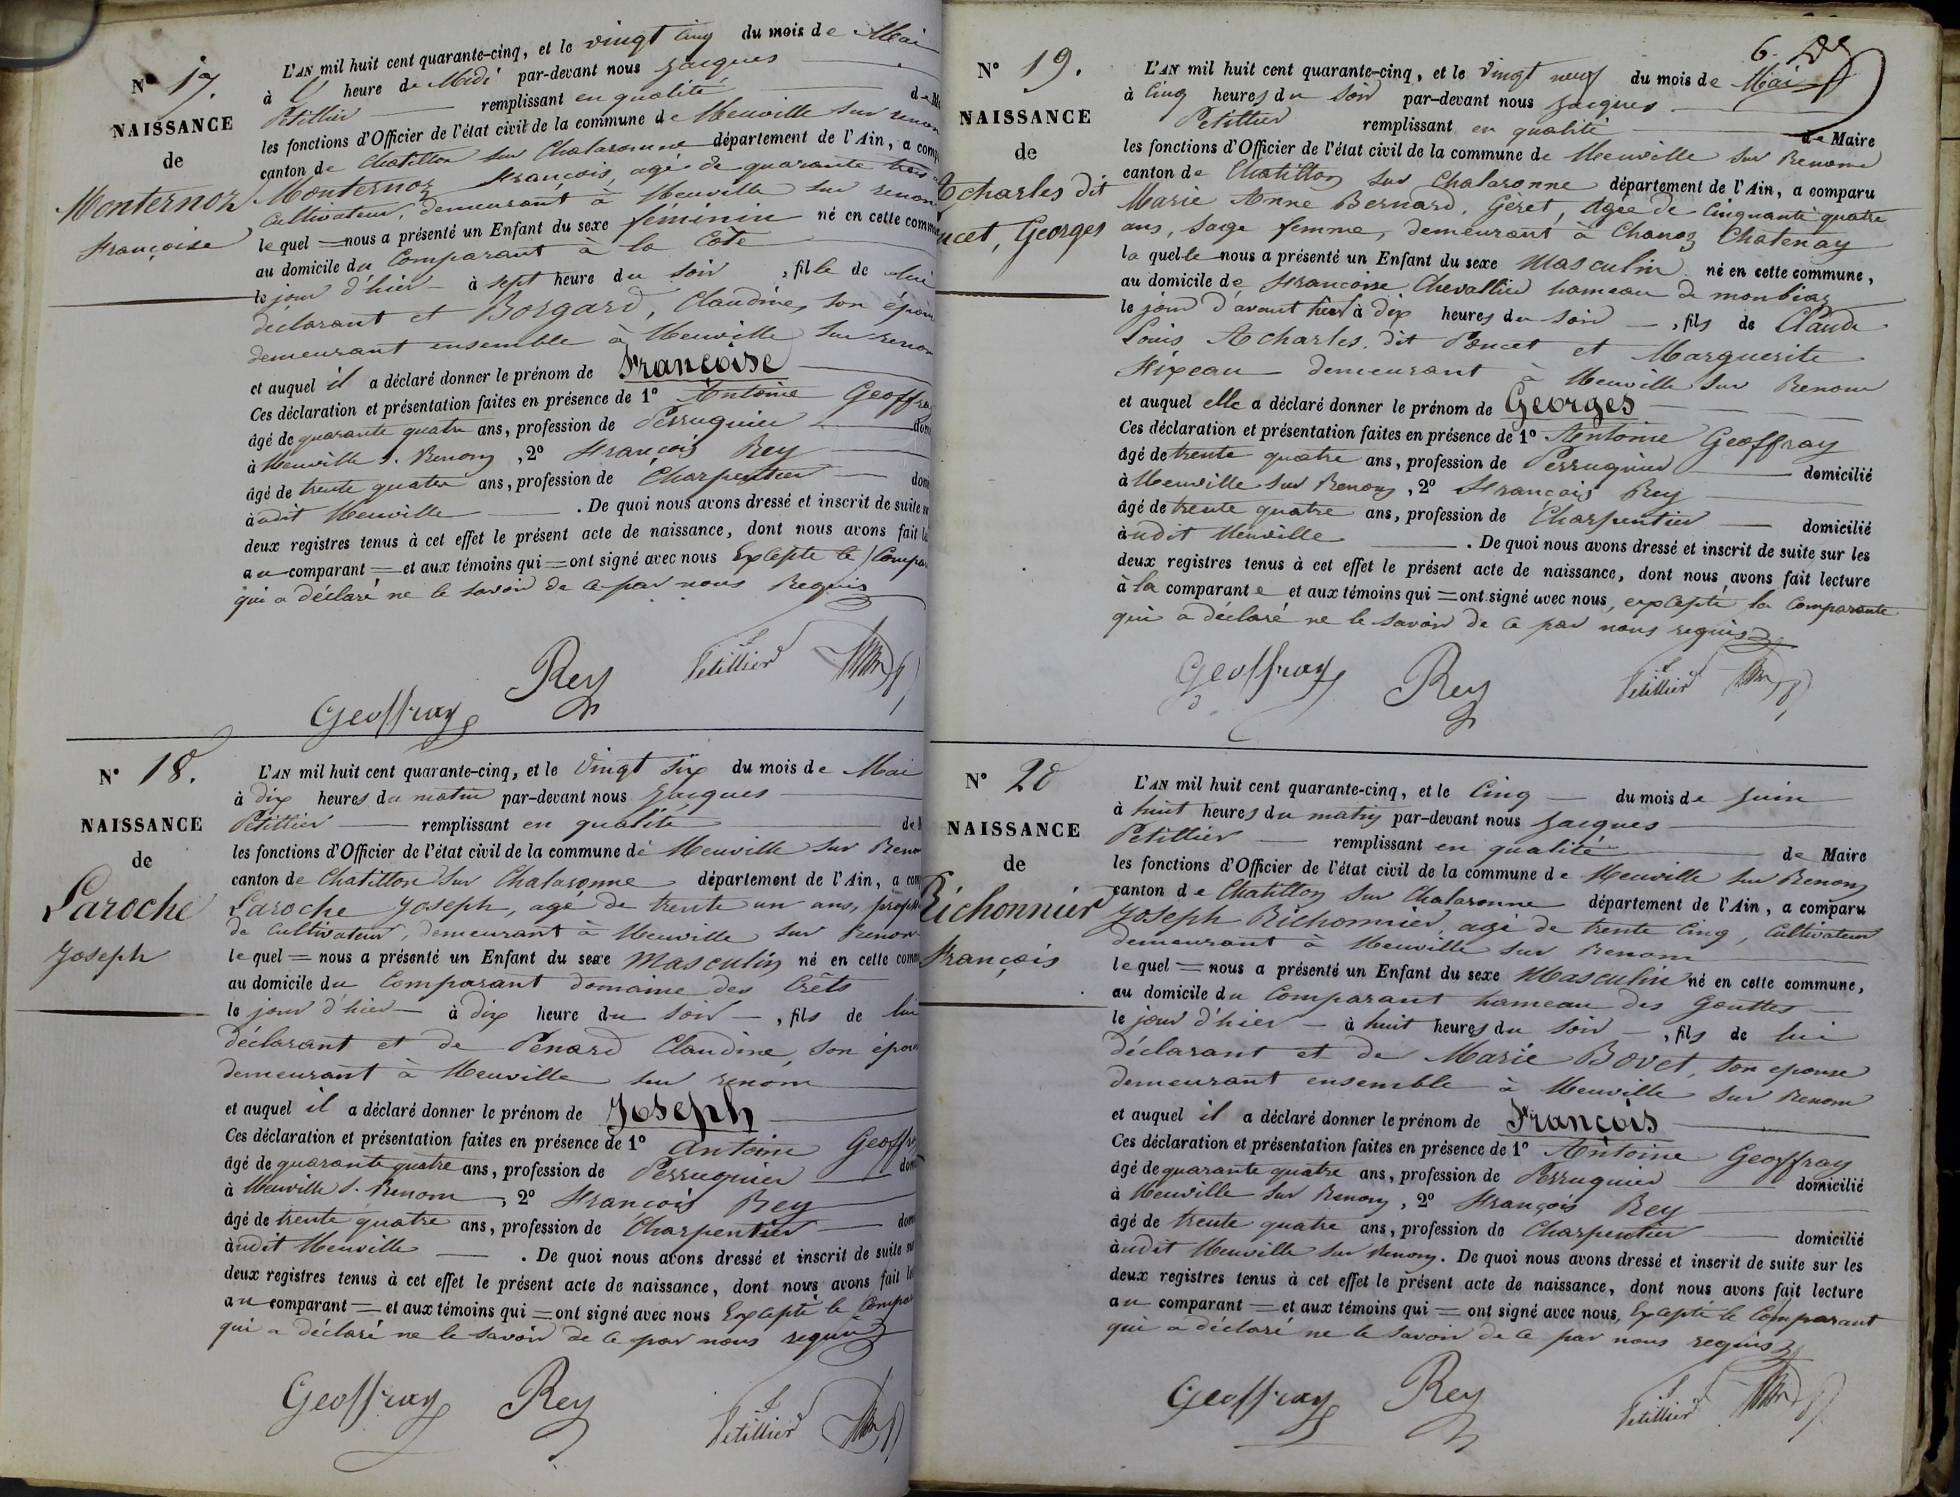 N° 17.
NAISSANCE
de
Monternoz
Françoise
L'AN mil huit cent quarante-cinq, et le vingt cinq du mois de Mai
à heure de Midi par-devant nous Jacques
Petillier remplissant en qualité de M
les fonctions d'Officier de l'état civil de la commune de Neuville sur renom
canton de Chatillon sur Chalaronne département de l'Ain, a comp
Monternoz François, agé de quarante trois
Cultivateur, demeurant à Neuville sur renom
lequel = nous a présenté un Enfant du sexe féminin né en cette comm
au domicile du Comparant à la Côte
le jour d'hier à sept heure du soir, fille de lui
déclarant et Borgard, Claudine, son épou
demeurant ensemble à Neuville sur renom
et auquel il a déclaré donner le prénom de Françoise
Ces déclaration et présentation faites en présence de 1° Antoine Geoffray
âgé de quarante quatre ans, profession de Perruquier domi
à Neuville s. Renom, 2° François Rey
âgé de trente quatre ans, profession de Charpentier domi
àudit Neuville . De quoi nous avons dressé et inscrit de suite su
deux registres tenus à cet effet le présent acte de naissance, dont nous avons fait le
au comparant = et aux témoins qui = ont signé avec nous Excepté le Compa
qui a déclaré ne le savoir de ce par nous Requis
Geoffray Rey Petillier
N° 18.
NAISSANCE
de
Laroche
Joseph
L'AN mil huit cent quarante-cinq, et le Vingt six du mois de Mai
à dix heures du matin par-devant nous Jacques
Petillier remplissant en qualité de M
les fonctions d'Officier de l'état civil de la commune de Neuville sur Renom
canton de Chatillon sur Chalaronne département de l'Ain, a com
Laroche Joseph, agé de trente un ans, profess
de Cultivateur, demeurant à Neuville sur Renom
lequel = nous a présenté un Enfant du sexe Masculin né en cette comm
au domicile du Comparant domaine des Crêts
le jour d'hier à dix heure du soir, fils de lui
déclarant et de Penard Claudine, son épou
demeurant à Neuville sur renom
et auquel il a déclaré donner le prénom de Joseph
Ces déclaration et présentation faites en présence de 1° Antoine Geoffr
âgé de quarante quatre ans, profession de Perruquier dom
à Neuville s. Renom, 2° François Rey
âgé de trente quatre ans, profession de Charpentier dom
àudit Neuville . De quoi nous avons dressé et inscrit de suite su
deux registres tenus à cet effet le présent acte de naissance, dont nous avons fait le
au comparant = et aux témoins qui = ont signé avec nous Excepté le Compa
qui a déclaré ne le savoir de ce par nous requis
Geoffray Rey Petillier
6.
N° 19.
NAISSANCE
de
Acharles dit
ucet, Georges
L'AN mil huit cent quarante-cinq, et le Vingt neuf du mois de Mai
à Cinq heures du soir par-devant nous Jacques
Petillier remplissant en qualité de Maire
les fonctions d'Officier de l'état civil de la commune de Neuville sur Renom
canton de Chatillon sur Chalaronne département de l'Ain, a comparu
Marie Anne Bernard, Geret, Agée de Cinquante quatre
ans, sage femme, demeurant à Chanoz Chatenay
laquelle nous a présenté un Enfant du sexe Masculin né en cette commune,
au domicile de Françoise Chevallier hameau de monbiaz
le jour d'avant hier à dix heures du soir, fils de Claude
Louis Acharles dit Poucet et Marguerite
demeurant à Neuville sur Renom
et auquel elle a déclaré donner le prénom de Georges
Ces déclaration et présentation faites en présence de 1° Antoine Geoffray
âgé de trente quatre ans, profession de Perruquier domicilié
à Neuville sur Renom, 2° François Rey
âgé de trente quatre ans, profession de Charpentier domicilié
àudit Neuville . De quoi nous avons dressé et inscrit de suite sur les
deux registres tenus à cet effet le présent acte de naissance, dont nous avons fait lecture
à la comparante et aux témoins qui = ont signé avec nous, excepté la Comparante
qui a déclaré ne le savoir de ce par nous requis
Geoffray Rey Petillier
N° 20
NAISSANCE
de
Richonnier
François
L'AN mil huit cent quarante-cinq, et le Cinq du mois de Juin
à huit heures du matin par-devant nous Jacques
Petillier remplissant en qualité de Maire
les fonctions d'Officier de l'état civil de la commune de Neuville sur Renom
canton de Chatillon sur Chalaronne département de l'Ain, a comparu
Joseph Richonnier, agé de trente Cinq, Cultivateur
demeurant à Neuville sur Renom
lequel = nous a présenté un Enfant du sexe Masculin né en cette commune,
au domicile du Comparant hameau des Gouttes
le jour d'hier à huit heures du soir, fils de lui
déclarant et de Marie Bovet, son epouse
demeurant ensemble à Neuville sur Renom
et auquel il a déclaré donner le prénom de François
Ces déclaration et présentation faites en présence de 1° Antoine Geoffray
âgé de quarante quatre ans, profession de Perruquier domicilié
à Neuville sur Renom, 2° François Rey
âgé de trente quatre ans, profession de Charpentier domicilié
àudit Neuville sur Renom. De quoi nous avons dressé et inscrit de suite sur les
deux registres tenus à cet effet le présent acte de naissance, dont nous avons fait lecture
au comparant = et aux témoins qui = ont signé avec nous, Excepté le Comparant
qui a déclaré ne le savoir de ce par nous requis
Geoffray Rey Petillier